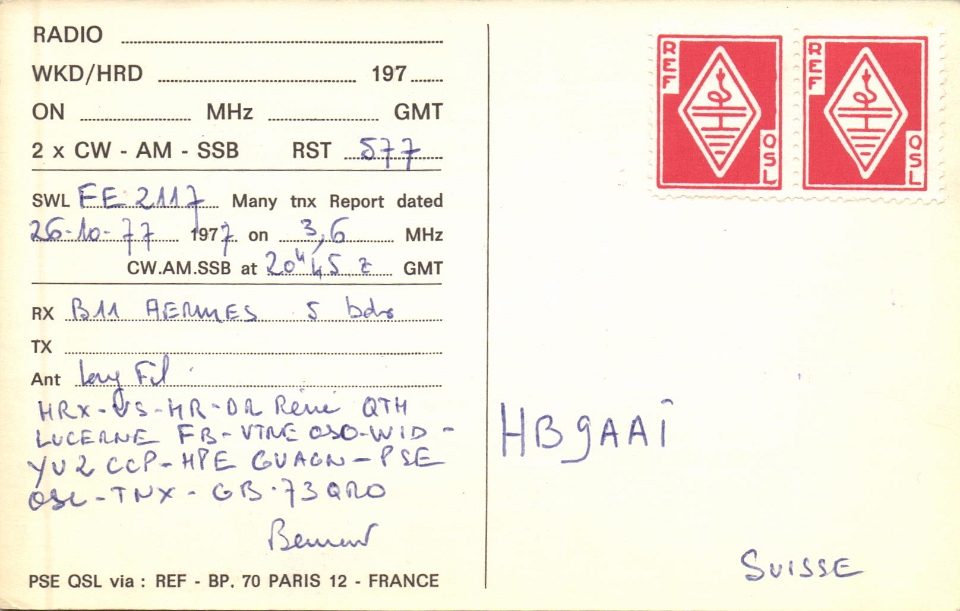 RADIO
WKD/HRD 197
ON MHz GMT
2 x CW - AM - SSB RST 577
SWL FE 2117 Many tnx Report dated
26-10-77 1977 on 3,6 MHz
CW.AM.SSB at 20H45 z GMT
RX B11 AERMES 5 bds
TX
Ant Long Fil
HRX-VS-HR-DR René QTH
LUCERNE FB-VTRE QSO-WID-
YU2CCP-HPE CUAGN-PSE
QSL-TNX-GB.73QRO
PSE QSL via : REF - BP. 70 PARIS 12 - FRANCE
REF QSL
REF QSL
HB9AAI
SUISSE